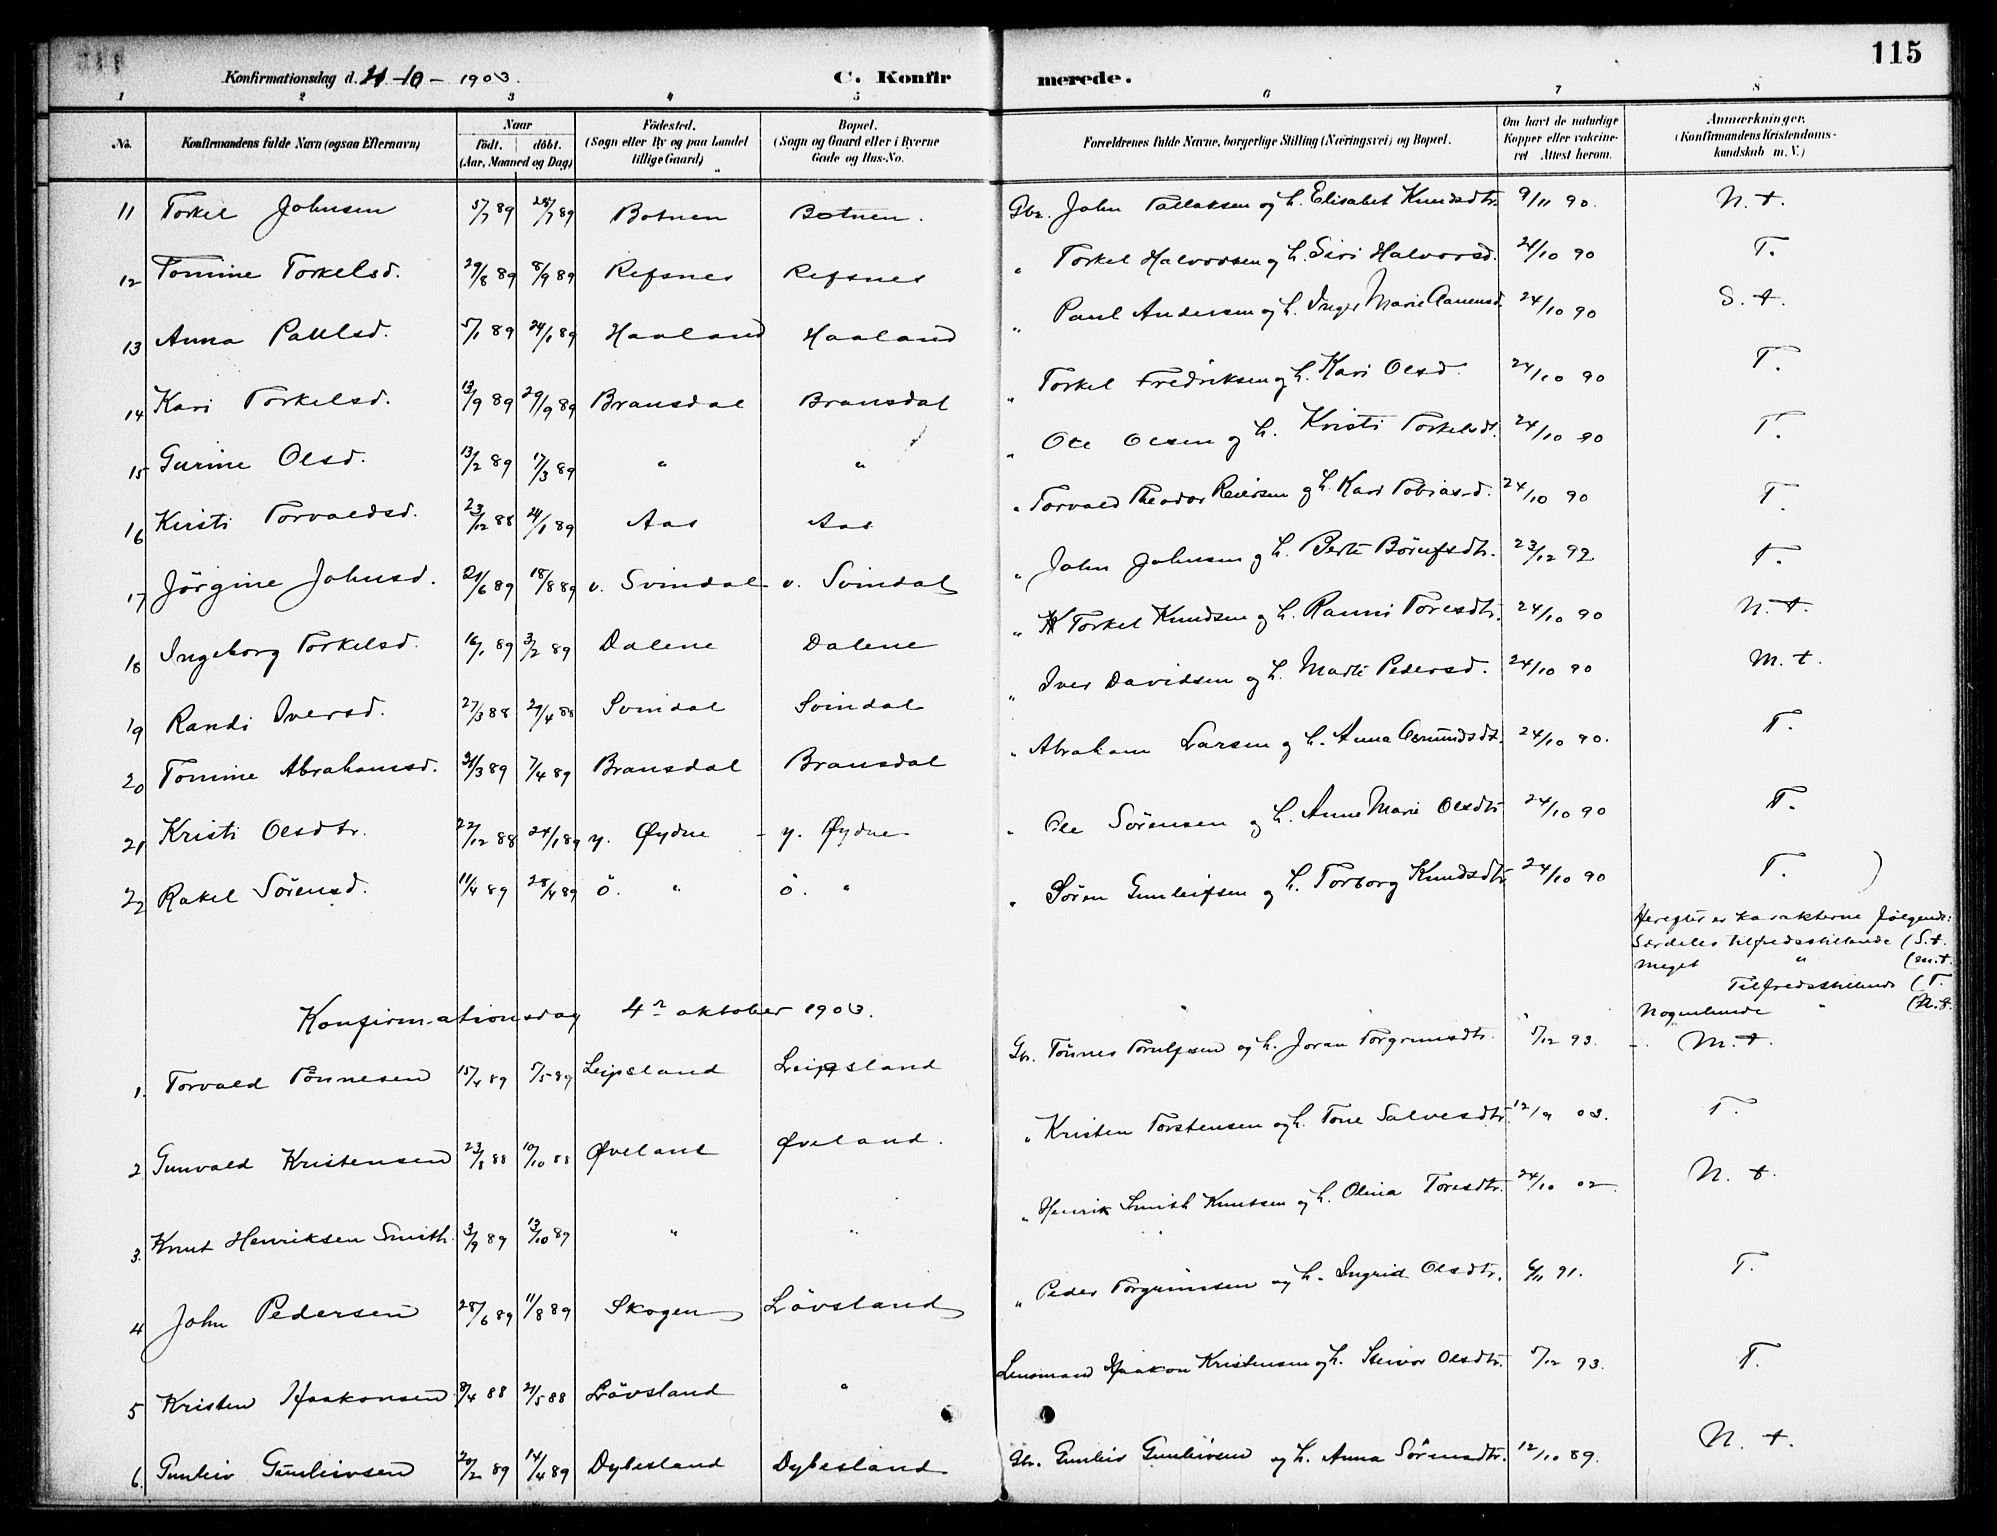 115
Konfirmationsdag d. 11-10- 1903.
C. Konfirmerede.
1 2 3 4 5 6 7 8
No. Konfirmandens fulde Navn (ogsaa Efternavn) Naar födt. döbt. (Aar, Maaned og Dag) Födested. (Sogn eller By og paa Landet tillige Gaard) Bopæl. (Sogn og Gaard eller i Byerne Gade og Hus-No. Forældrenes fulde Navne, borgerlige Stilling (Næringsvei) og Bopæl. Om havt de naturlige Kopper eller vakcineret Attest herom. Anmærkninger, (Konfirmandens Kristendomskundskab m. V.)
11 Torkel Johnsen 5/7 89 28/7 89 Botnen Botnen. Gbr. John Tallaksen og h. Elisabet Knudsdtr. 9/11 90. N. t.
12 Tomine Torkelsd. 29/8 89 8/9 89 Refsnes Refsnes " Torkel Halvorsen og h. Siri Halvorsd. 24/10 90 T.
13 Anna Paulsd. 5/1 89 24/1 89 Haaland Haaland " Paul Andersen og h. Inger Marie Aanensd. 24/10 90 S. t.
14 Kari Torkelsd. 13/9 89 29/9 89 Bransdal Bransdal " Torkel Fredriksen og h. Kari Olsd. 24/10 90 T.
15 Gurine Olsd. 13/2 89 17/3 89 " " " Ole Olsen og h. Kristi Torkelsdt. 24/10 90 T.
16 Kirsti Torvaldsd. 23/12 88 24/1 89 Aas Aas " Torvald Theodor Reiersen og h. Kari Tobiasd. 24/10 90 T.
17 Jörgine Johnsd. 21/6 89 18/8 89 v. Svindal v. Svindal " John Johnsen og h. Berte Börufsdtr. 23/12 92 T.
18 Ingeborg Torkelsd. 16/1 89 3/2 89 Dalene Dalene " Torkel Knudsen og h. Ranni Toresdtr. 24/10 90 N. t.
19 Randi Iversd. 27/3 88 29/4 88 Svindal Svindal " Iver Davidsen og h. Marte Pedersd. 24/10 90 M. t.
20 Tomine Abrahamsd. 21/3 89 7/4 89 Bransdal Bransdal " Abraham Larsen og h. Anna Osmundsdt. 24/10 90. T.
21 Kristi Olsdtr. 22/12 88 24/1 89 y. Øydne y. Øydne " Ole Sörensen og h. Anne Marie Olsdtr 24/10 90 T.
22 Rakel Sörensd. 11/4 89 28/4 89 ö. " ö. " " Sören Gunleifsen og h. Torborg Knudsdtr 24/10 90 T. )
Herefter er karakterne fölgende:
Særdeles tilfredsstillende (S.t.
Meget " (m.t.
Tilfredsstillende (T.
Nogenlunde " (N.t.
Konfirmationsdag 4de oktober 1903.
1. Torvald Tönnesen 15/4 89 5/5 89 Leipsland Leipsland Gbr. Tönnes Torulfsen og h. Joran Torgrimsdtr. 5/12 93. M. t.
2. Gunvald Kristensen 23/8 88 10/10 88 Øveland Øveland. " Kristen Torstensen og h. Tone Salvesdtr. 12/9 03. T.
3. Knut Henriksen Smith. 3/9 89 13/10 89 " " " Henrik Smith Knutsen og h. Olina Toresdtr. 24/10 02. N. t.
4 John Pedersen 28/6 89 11/8 89 Skogen Lövsland " Peder Torgrimsen og h. Ingrid Olsdtr. 6/11 91. T.
5 Kristen Haakonsen 8/4 88 21/5 88 Lövsland " Lensmand Haakon Kristensen og h. Steivor Olsdtr. 5/12 93. T.
6. Gunleiv Gunleivsen 20/2 89 14/4 89 Dybesland Dybesland Gbr. Gunleiv Gunleivsen og h. Anna Sörensdtr. 12/10 89. N. t.